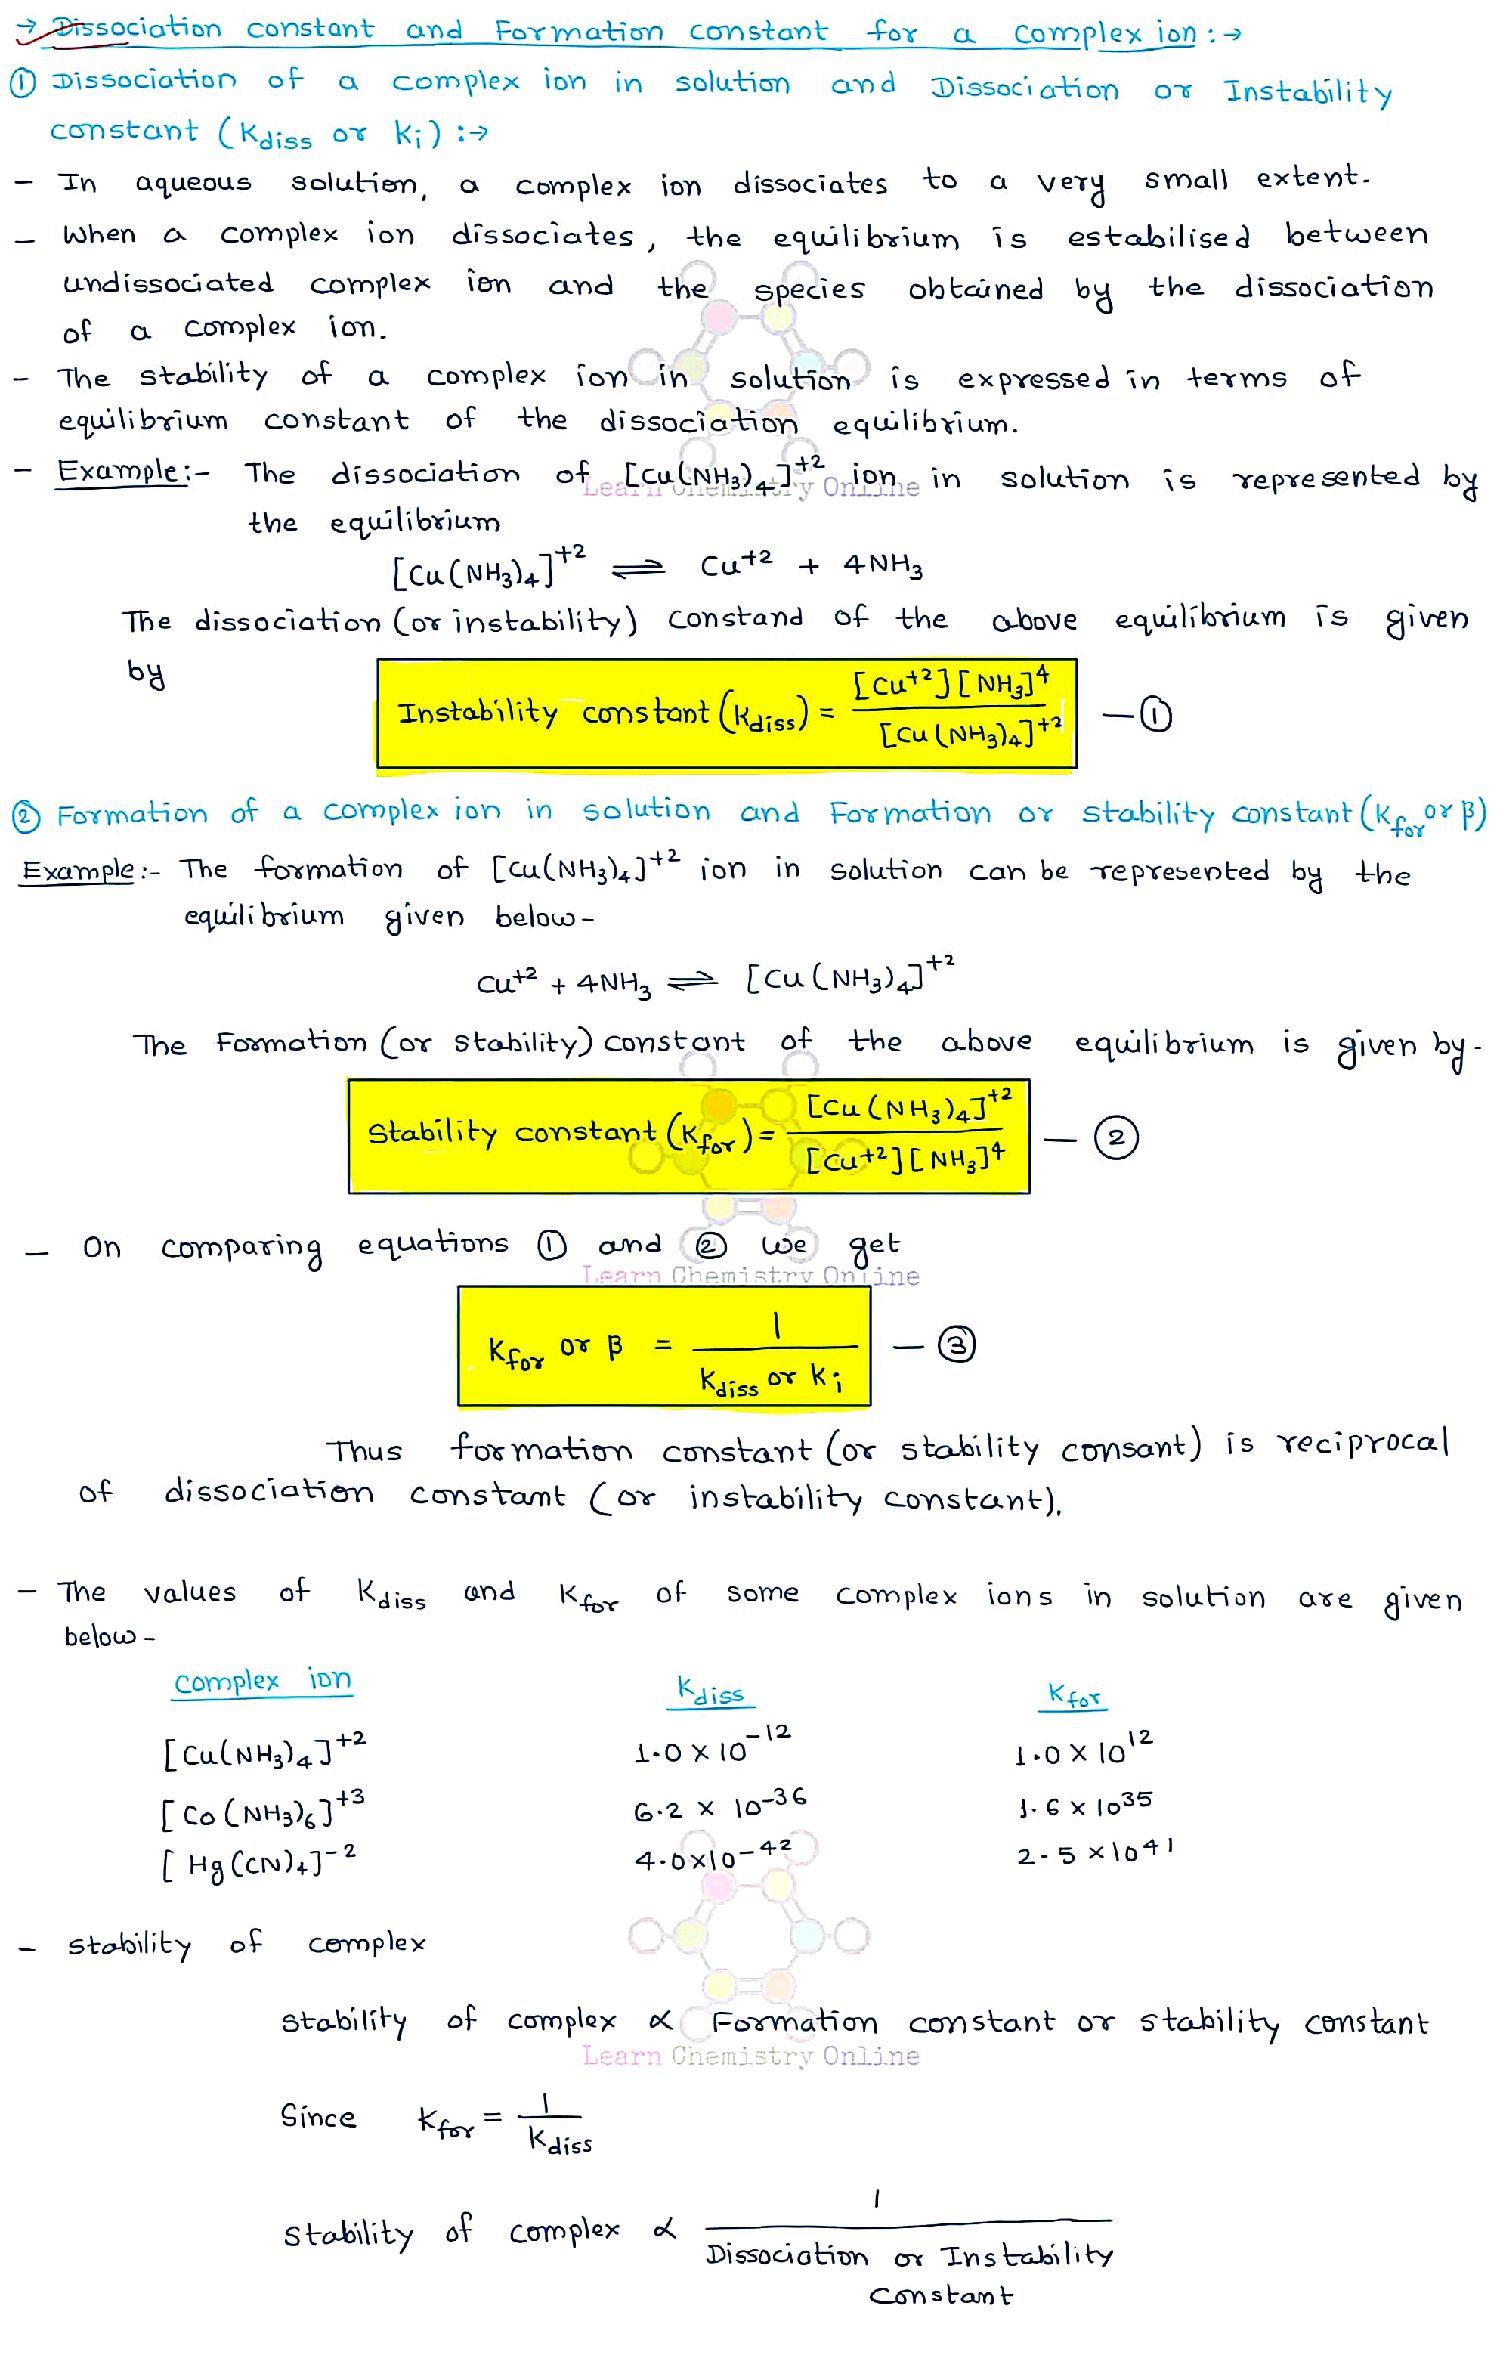 → Dissociation constant and Formation constant for a complex ion :→
① Dissociation of a complex ion in solution and Dissociation or Instability
constant (Kdiss or Ki) :→
- In aqueous solution, a complex ion dissociates to a very small extent.
- When a complex ion dissociates, the equilibrium is estabilised between
undissociated complex ion and the species obtained by the dissociation
of a complex ion.
- The stability of a complex ion in solution is expressed in terms of
equilibrium constant of the dissociation equilibrium.
- Example:- The dissociation of [Cu(NH₃)₄]⁺² ion in solution is represented by
Learn Chemistry Online
the equilibrium
[Cu(NH₃)₄]⁺² ⇌ Cu⁺² + 4NH₃
The dissociation (or instability) constand of the above equilibrium is given
by
Instability constant (Kdiss) = [Cu⁺²][NH₃]⁴ / [Cu(NH₃)₄]⁺² — ①
② Formation of a complex ion in solution and Formation or stability constant (Kfor or β)
Example:- The formation of [Cu(NH₃)₄]⁺² ion in solution can be represented by the
equilibrium given below-
Cu⁺² + 4NH₃ ⇌ [Cu(NH₃)₄]⁺²
The Formation (or stability) constant of the above equilibrium is given by-
Stability constant (Kfor) = [Cu(NH₃)₄]⁺² / [Cu⁺²][NH₃]⁴ — ②
- On comparing equations ① and ② we get
Learn Chemistry Online
Kfor or β = 1 / Kdiss or Ki — ③
Thus formation constant (or stability consant) is reciprocal
of dissociation constant (or instability constant).
- The values of Kdiss and Kfor of some complex ions in solution are given
below-
Complex ion Kdiss Kfor
[Cu(NH₃)₄]⁺² 1.0 × 10⁻¹² 1.0 × 10¹²
[Co(NH₃)₆]⁺³ 6.2 × 10⁻³⁶ 1.6 × 10³⁵
[Hg(CN)₄]⁻² 4.0×10⁻⁴² 2.5 ×10⁴¹
- Stability of complex
Stability of complex ∝ Formation constant or stability constant
Learn Chemistry Online
Since Kfor = 1 / Kdiss
Stability of complex ∝ 1 / Dissociation or Instability
Constant